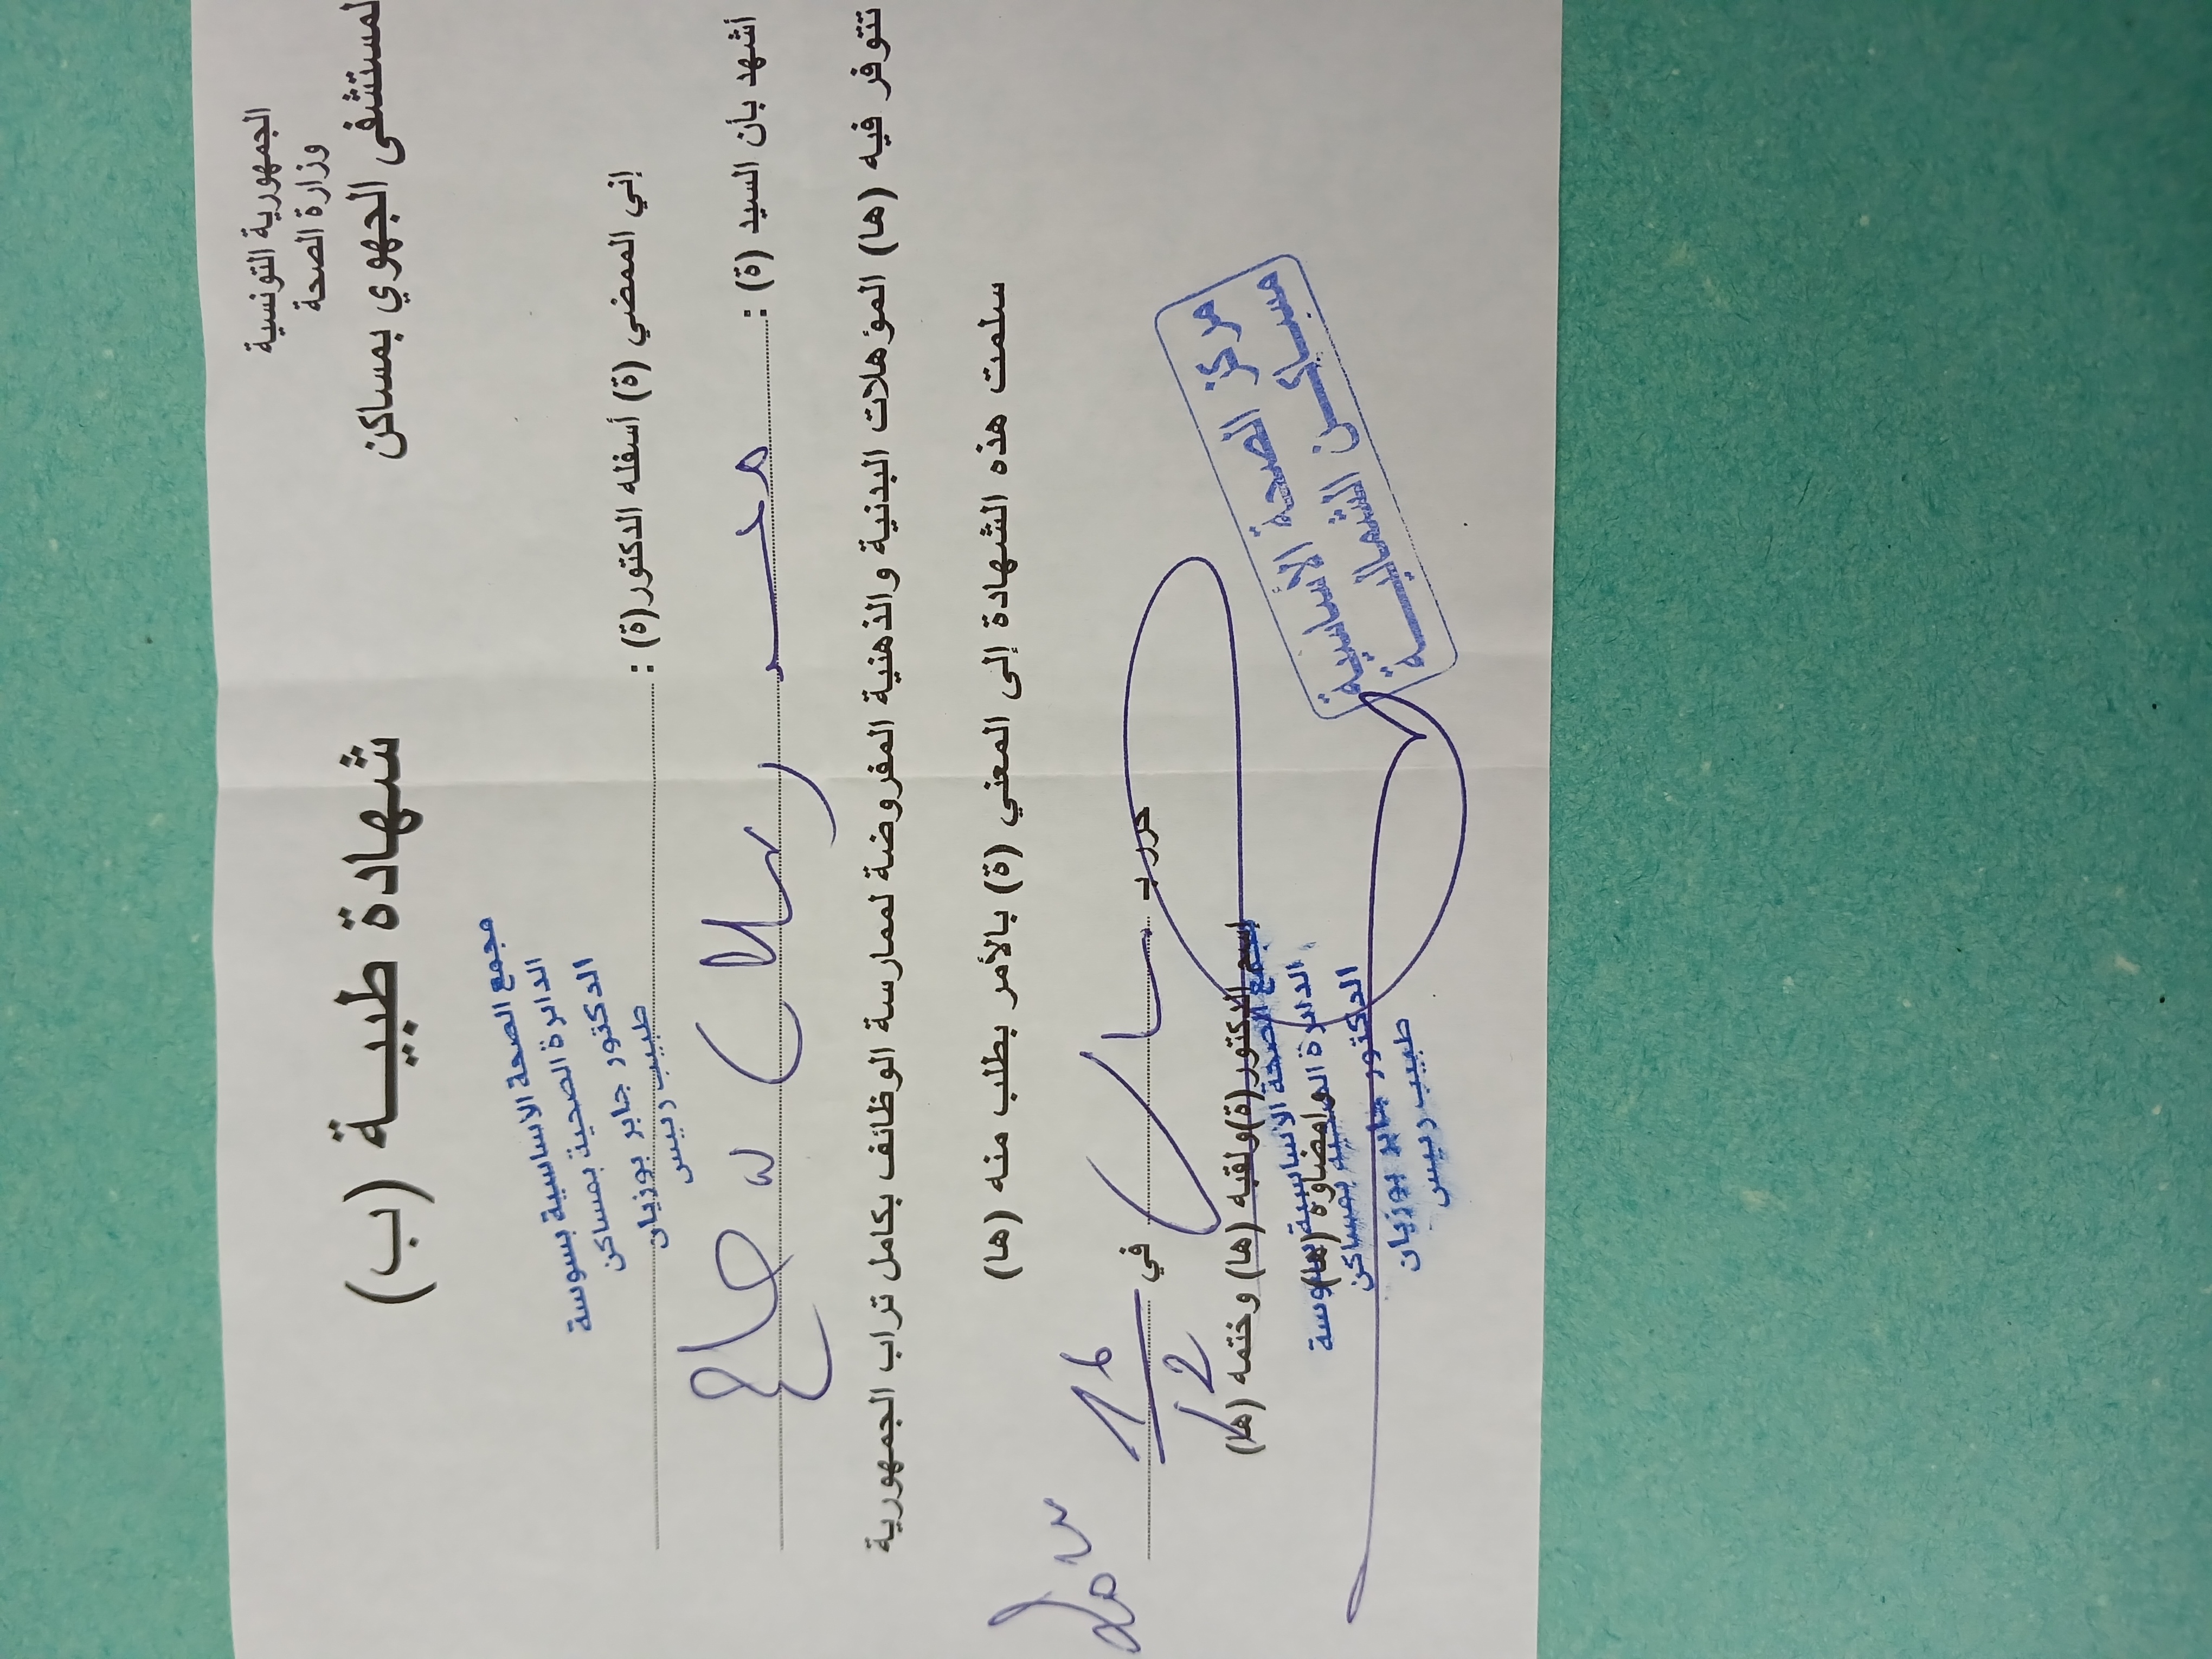 الجمهورية التونسية
وزارة الصحة
لمستشفى الجهوي بمساكن
شهادة طبيـــة (ب)
مجمع الصحة الاساسية بسوسة
الدائرة الصحية بمساكن
الدكتور جابر بوزيان
طبيب رئيس
إني الممضي (ة) أسفله الدكتور(ة) :
أشهد بأن السيد (ة) : محمد
تتوفر فيه (ها) المؤهلات البدنية والذهنية المفروضة لممارسة الوظائف بكامل تراب الجمهورية
سلمت هذه الشهادة إلى المعني (ة) بالأمر بطلب منه (ها)
حرر بـ في 16
12
اسم الدكتور(ة)ولقبه (ها) وختمه (ها)
وامضاؤه (ها)
مجمع الصحة الاساسية بسوسة
الدائرة الصحية بمساكن
الدكتور جابر بوزيان
طبيب رئيس
مركز الصحة الأساسية
مساكـن الشماليـــة